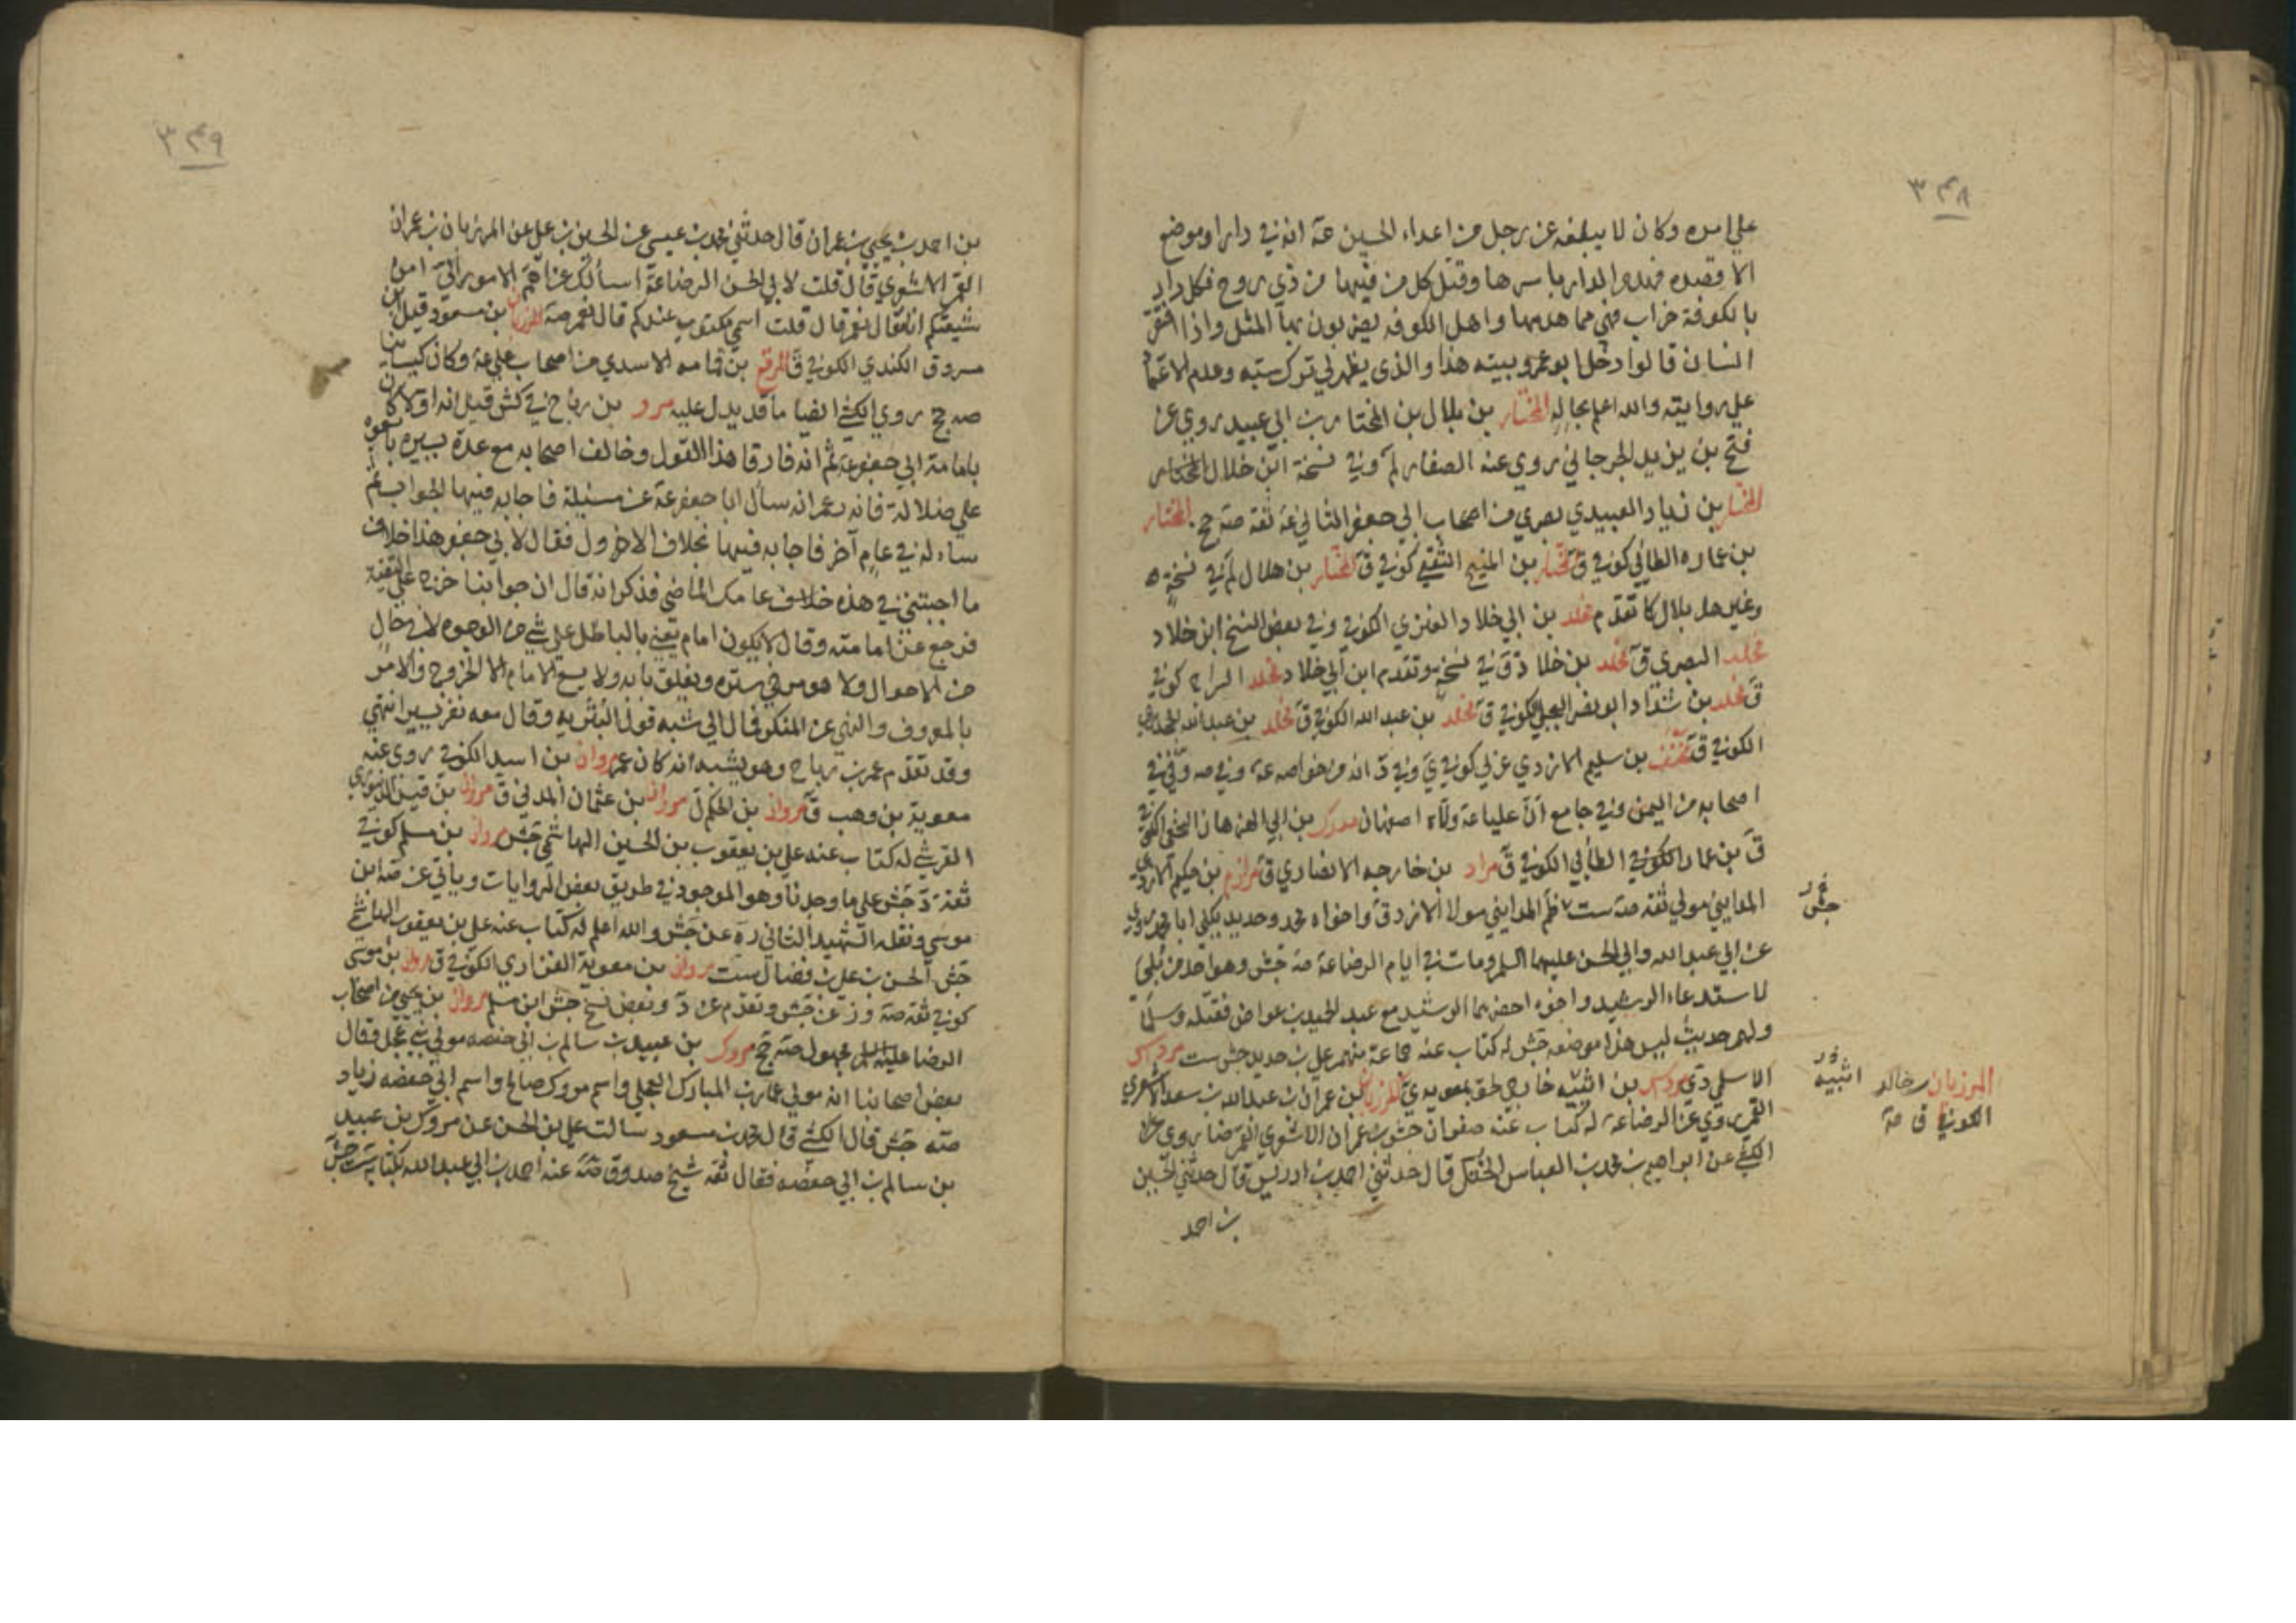 ٣٤٨
على امره وكان لا يبلغه عن رجل من اعداء الحسين عة انه في دار او موضع
الا قصده فهدم الدار باسرها وقتل كل من فيها من ذي روح فكل دار
بالكوفة خراب فهي مما هدمها واهل الكوفه يضربون بها المثل واذا افتقر
انسان قالوا دخل ابو عمرو بيته هذا والذي يظهر لي ترك سبه وعدم الاعتماد
على روايته والله اعلم بحاله المختار بن بلال بن المختار بن ابي عبيد روي عن
فتح بن يزيد الجرجاني روي عنه الصفار لم وفي نسخة ابن خلال المختار
المختار بن زياد العبيدي بصري من اصحاب ابي جعفر الثاني عة ثقة صة ج المختار
بن عماره الطائي كوفي ق المختار بن المنيح الثقفي كوفي ق المختار بن هلال لم في نسخة
وغيرها بلال كما تقدم مخلد بن ابي خلاد العنزي الكوفي وفي بعض النسخ ابن خلاد
مخلد البصري ق مخلد بن خلاد ق في نسخة وتقدم ابن ابي خلاد مخلد السراج كوفي
ق مخلد بن شداد ابو نصر البجلي الكوفي ق مخلد بن عبد الله الكوفي ق مخلد بن عبد الله
الكوفي ق مخنف بن سليم الازدي عربي كوفي ي وفي د انه من خواصه عة وفي صه وقي في
اصحابه من اليمن وفي جامع ان عليا عة ولاه اصفهان مدرك بن ابي الهزهاز النخعي الكوفي
ق بن عمار الكوفي الطائي الكوفي ق مراد بن خارجه الانصاري ق مرازم بن حكيم الازدي
المدايني مولي ثقة صة ست ظم المدايني مولا الازد ق واخواه محمد وحديد يكني ابا محمد روي
جش
عن ابي عبد الله وابي الحسن عليهما السلم ومات في ايام الرضا عة صة جش وهو احد من بلي
لاستدعاء الرشيد واخوه احضرهما الرشيد مع عبد الحميد بن عواض فقتله وسلما
ولهم حديث ليس هذا موضعه جش له كتاب عنه جماعة منهم علي بن حديد جش ست مرداس
الاسلمي بن اثنيه خارجي لحق بمعويه ي المرزبان بن عمران بن عبد الله بن سعد الاشعري
اثبيه
المرزبان بن خالد
الكوفي ق مة
القمي روي عن الرضا عة له كتاب عنه صفوان جش بن عمران الاشعري القمي ضا روي
الكشي عن ابراهيم بن محمد بن العباس الختلي قال حدثني احمد بن ادريس قال حدثني الحسين
بن احمد
٣٤٩
بن احمد بن يحيى بن عمران قال حدثني محمد بن عيسى عن الحسين بن علي عن المرزبان بن عمران
القمي الاشعري قال قلت لابي الحسن الرضا عة اسألك عن اهم الامور الي امن
شيعتكم انا فقال نعم قال قلت اسمي مكتوب عندكم قال نعم صة المرزبان بن مسعود قيل ابن
مسروق الكندي الكوفي ق المرقع بن قمامه الاسدي من اصحاب علي عة وكان كيسانيا
صه ج روي الكشي ايضا ما قد يدل عليه مرو بن رباح في كش قيل انه اولا كان
بامامة ابي جعفر عة ثم انه فارق هذا القول وخالف اصحابه مع عدة يسيره بايعوه
على ضلالته فانه زعم انه سال ابا جعفر عة عن مسئلة فاجابه فيها الجواب ثم
ساءله في عام آخر فاجابه فيها بخلاف الاول فقال لابي جعفر هذا خلاف
ما اجبتني في هذه خلاف عامك الماضي فذكر انه قال ان جوابنا خرج على التقية
فرجع عن امامته وقال لا يكون امام يفتي بالباطل على شي من الوجوه لا في حال
من الاحوال ولا هو مرخي ستره ويغلق بابه ولا يسع الامام الا الخروج والامر
بالمعروف والنهي عن المنكر فمال الى شبه قول البتريه وقال معه نفر يسير انتهى
وقد تقدم عمر بن رباح وهو يشبه انه كان عمر مروان بن اسيد الكوفي روي عنه
معوية بن وهب ق مروان بن الحكم ل مروان بن عثمان المدني ق مروان بن قيس الدينوري
القرشي له كتاب عنه علي بن يعقوب بن الحسين الهاشمي جش مروان بن مسلم كوفي
ثقة د جش على ما وجدنا وهو الموجود في طريق بعض الروايات وياتي عن صه ابن
موسى ونقله الشهيد الثاني ره عن جش والله اعلم له كتاب عنه علي بن يعقوب الهاشمي
جش الحسن بن علي بن فضال ست مروان بن معوية الفزاري الكوفي ق مروان بن موسى
كوفي ثقة صة وز عن جش وتقدم عن د وبعض نسخ جش ابن مسلم مروان بن يحيى من اصحاب
الرضا عليه السلم مجهول صة ج مروك بن عبيد بن سالم بن ابي حفصه مولي بني عجل وقال
بعض اصحابنا انه مولي عمار بن المبارك العجلي واسم مروك صالح واسم ابي حفصه زياد
صة جش قال الكشي قال محمد بن مسعود سالت علي بن الحسن عن مروك بن عبيد
بن سالم بن ابي حفصه فقال ثقة شيخ صدوق صة عنه احمد بن ابي عبد الله بكتابه ست جش